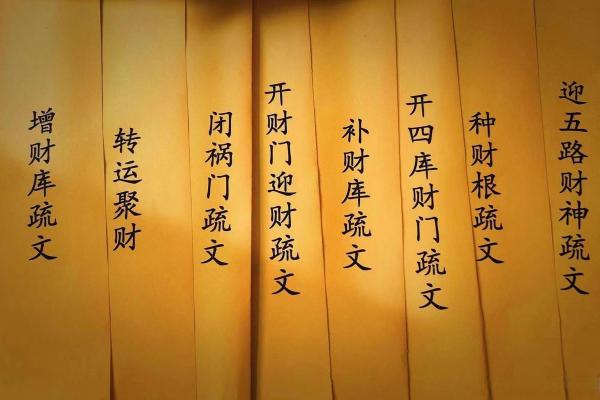 增财库疏文
转运聚财
闭祸门疏文
开财门迎财疏文
补财库疏文
开四库财门疏文
种财根疏文
迎五路财神疏文